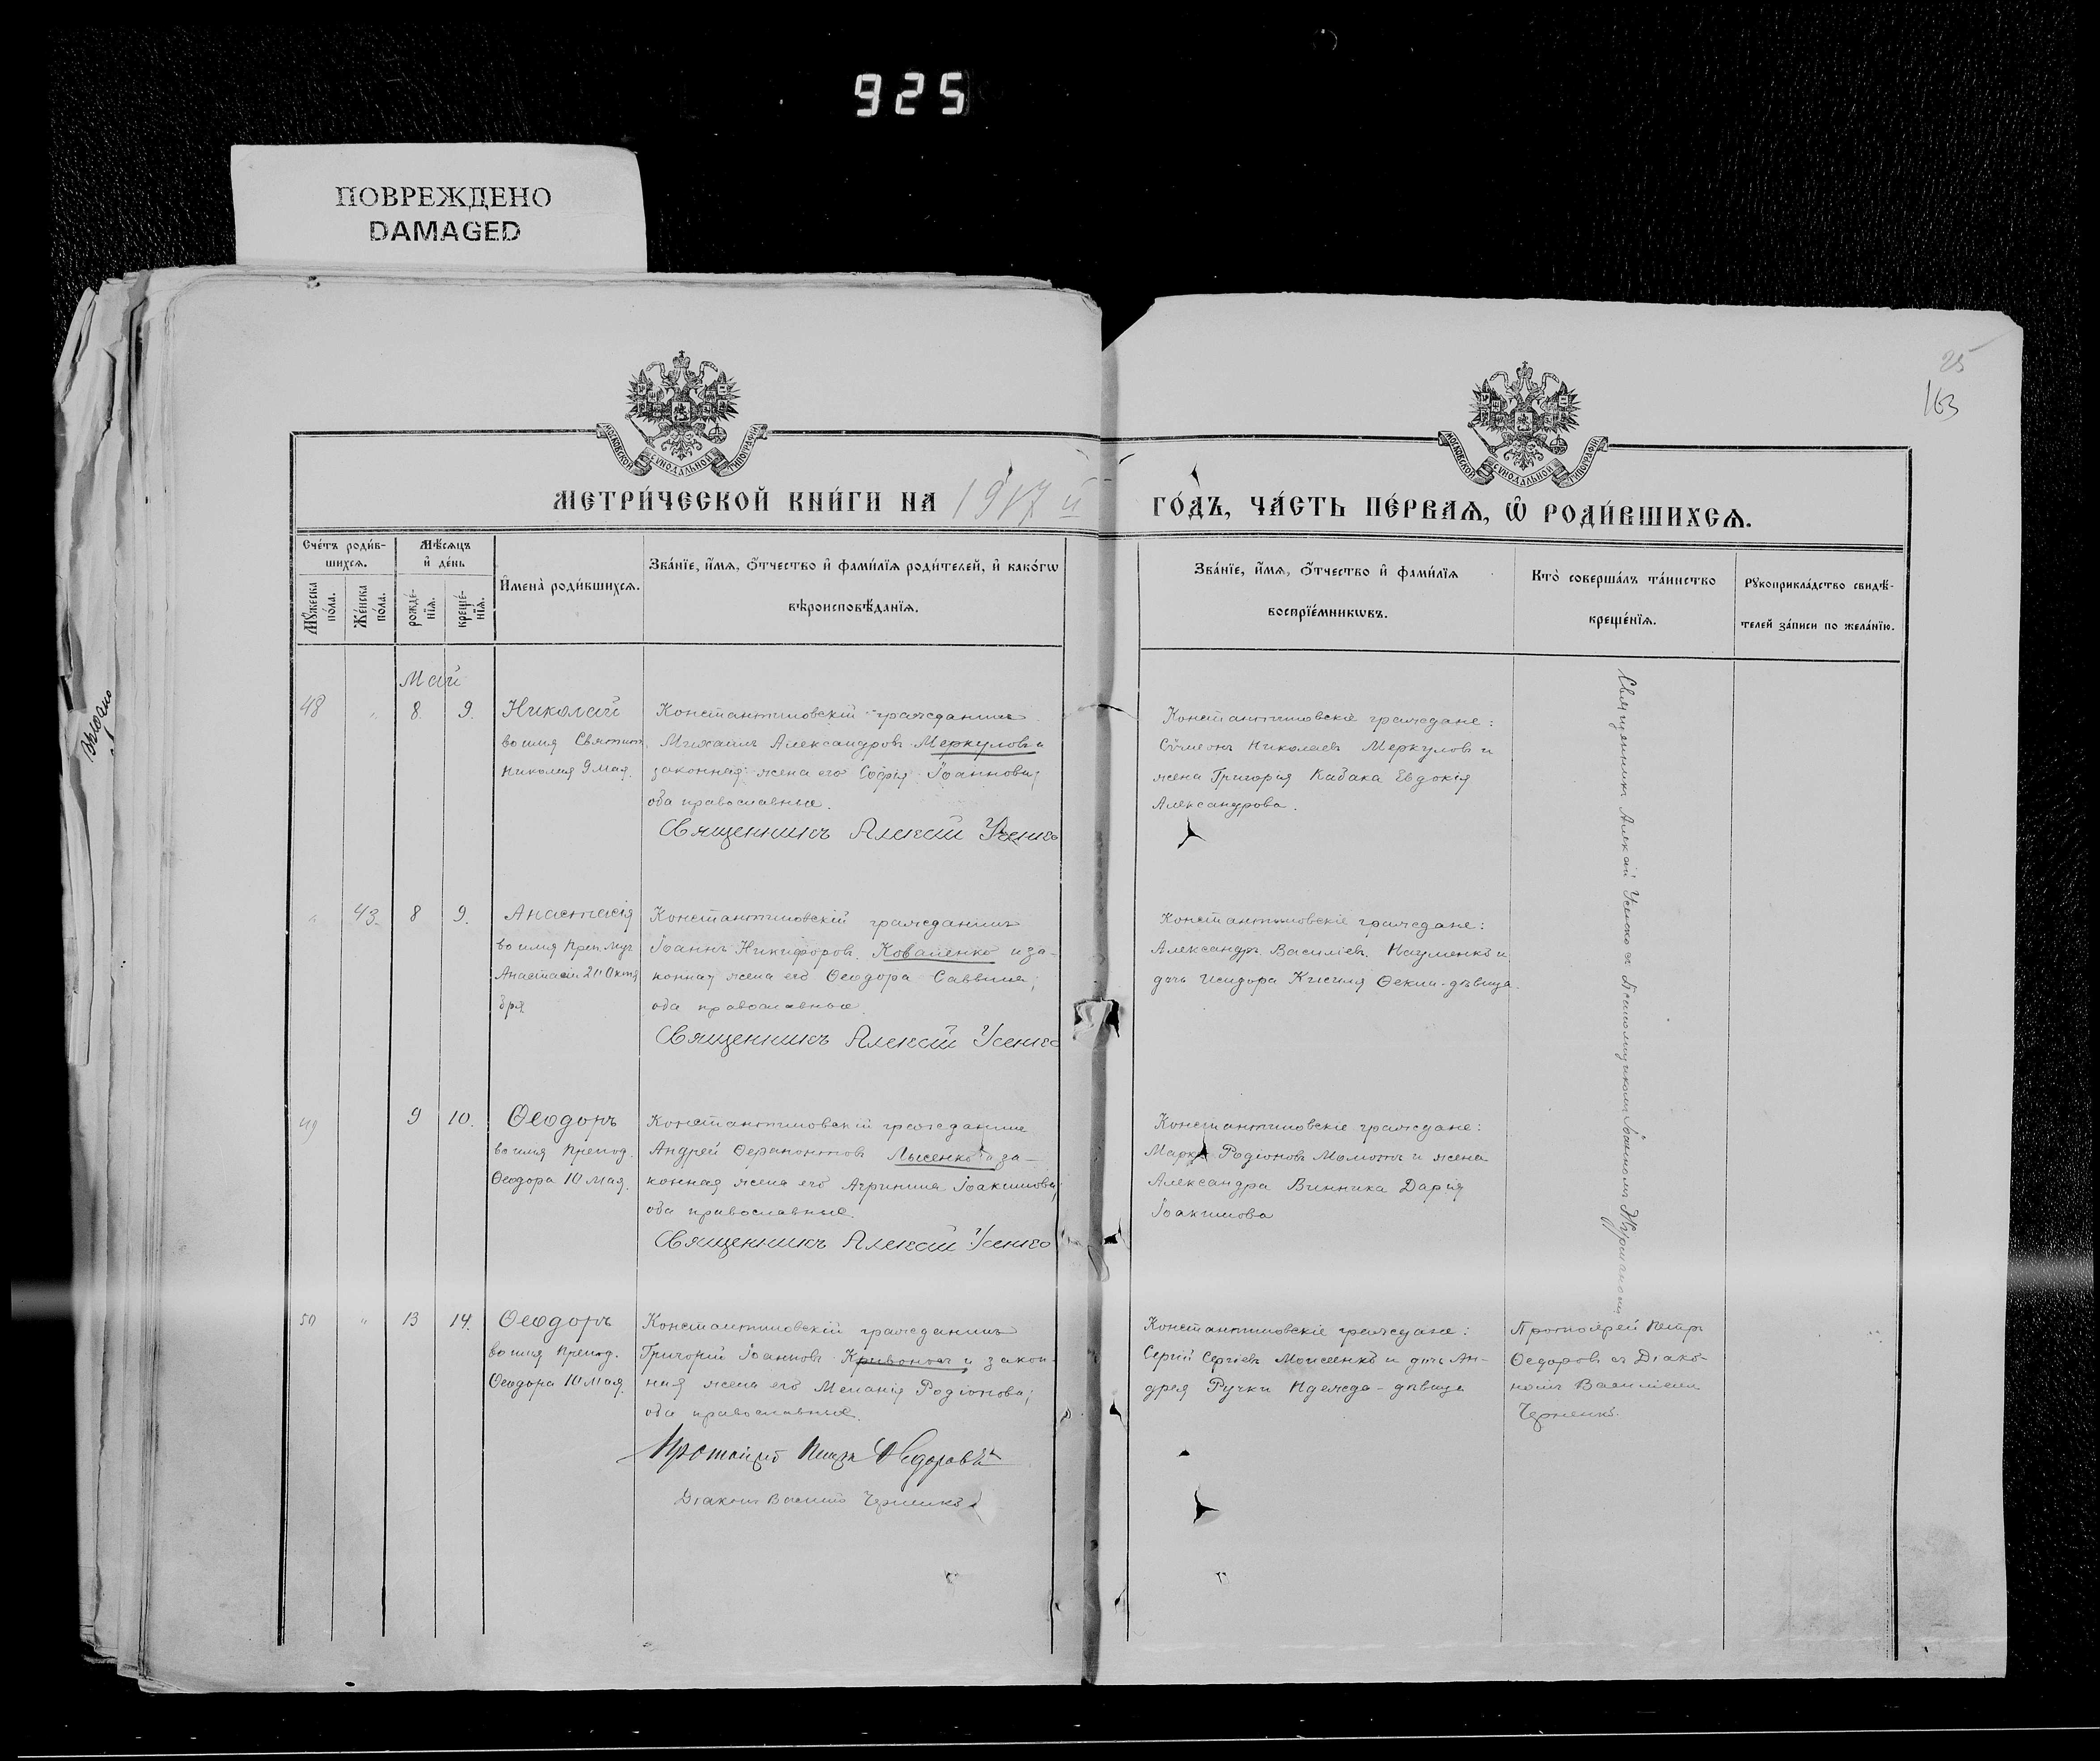 925
ПОВРЕЖДЕНО
DAMAGED
25
163
МОСКОВСКОЙ СѴНОДАЛЬНОЙ ТИПОГРАФІИ
МОСКОВСКОЙ СѴНОДАЛЬНОЙ ТИПОГРАФІИ
МЕТРИ́ЧЕСКОЙ КНИ́ГИ НА 1917 й
ГО́ДЪ, ЧА́СТЬ ПЕ́РВАѦ, Ѡ҆ РОДИ́ВШИХСѦ.
Сче́тъ роди́в-
шихсѧ.
Мꙋ́жеска по́ла.
Же́нска по́ла.
Мѣ́сѧцъ
и҆ де́нь
рожде́-
нїѧ.
креще́-
нїѧ.
И҆мена̀ роди́вшихсѧ.
Зва́нїе, и҆́мѧ, ѻ҆́тчество и҆ фами́лїѧ роди́телей, и҆ како́гѡ
вѣроисповѣ́данїѧ.
Зва́нїе, и҆́мѧ, ѻ҆́тчество и҆ фами́лїѧ
воспрїе́мникѡвъ.
Кто̀ соверша́лъ та́инство
креще́нїѧ.
Рꙋкоприкла́дство свидѣ́-
телей за́писи по жела́нїю.
Май
48 " 8. 9.
Николай
во имя Святит.
Николая 9 Мая.
Константиновскій гражданинъ
Михаилъ Александровъ Меркуловъ и
законная жена его Софія Іоаннова;
оба православные.
Священникъ Алексій Усенко
Константиновскіе граждане:
Сѵмеонъ Николаевъ Меркуловъ и
жена Григорія Кабака Евдокія
Александрова.
Священникъ Алексій Усенко съ Псаломщикомъ Іоанномъ
" 43. 8 9.
Анастасія
во имя Преп. Муч.
Анастасіи 29 Октя
бря
Константиновскій гражданинъ
Іоаннъ Никифоровъ Коваленко и за-
конная жена его Ѳеодора Саввина;
оба православные.
Священникъ Алексій Усенко
Константиновскіе граждане:
Александръ Василіевъ Науменко и
дочь Исидора Кисиля Ѳекла - дѣвица.
49 9 10.
Ѳеодоръ
во имя Препод.
Ѳеодора 10 мая.
Константиновскій гражданинъ
Андрей Ѳерапонтовъ Лысенко и за-
конная жена его Агрипина Іоакимова;
оба православные.
Священникъ Алексій Усенко
Константиновскіе граждане:
Маркъ Родіоновъ Момотъ и жена
Александра Винника Дарія
Іоакимова
50 " 13 14.
Ѳеодоръ
во имя Препод.
Ѳеодора 10 мая.
Константиновскій гражданинъ
Григорій Іоанновъ Кривоносъ и закон-
ная жена его Меланія Родіонова;
оба православные.
Протоіерей Петръ Ѳедоровъ
Діаконъ Василій Черненко
Константиновскіе граждане:
Сергій Сергіевъ Моисеенко и дочь Ан-
дрея Ручки Надежда - дѣвица
Протоіерей Петръ
Ѳедоровъ съ Діако-
номъ Василіемъ
Черненко.